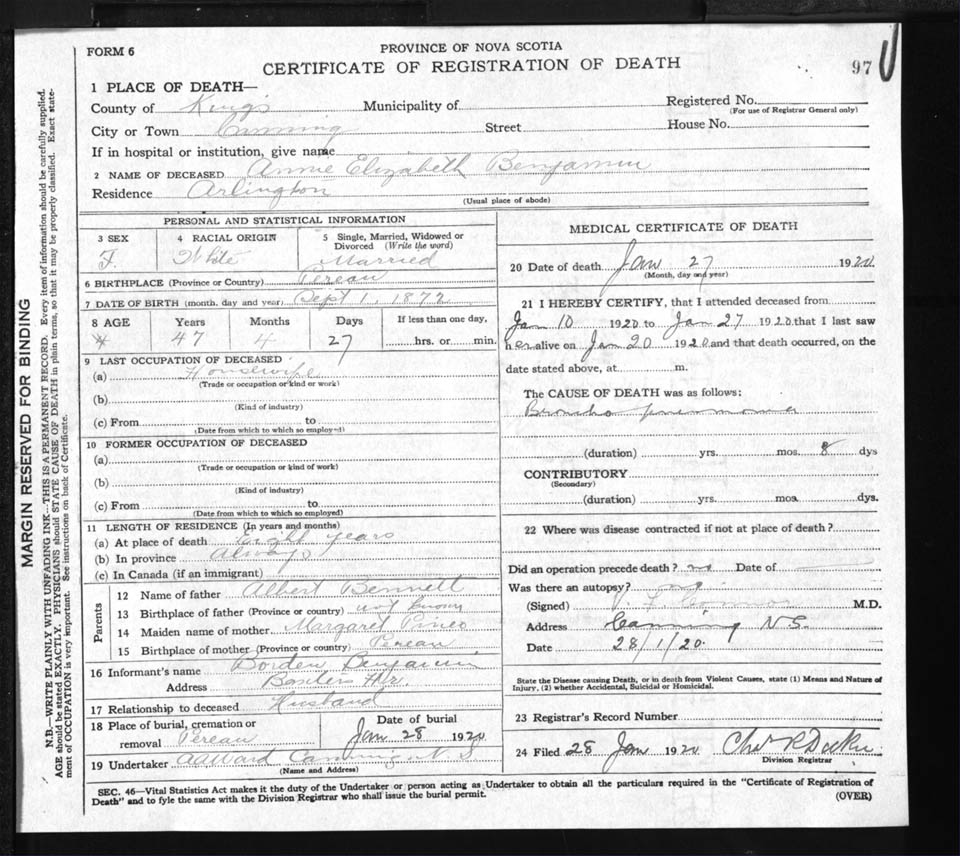 FORM 6
PROVINCE OF NOVA SCOTIA
CERTIFICATE OF REGISTRATION OF DEATH
97
1 PLACE OF DEATH—
County of Kings Municipality of Registered No.
(For use of Registrar General only)
City or Town Canning Street House No.
If in hospital or institution, give name
2 NAME OF DECEASED Annie Elizabeth Benjamin
Residence Arlington
(Usual place of abode)
PERSONAL AND STATISTICAL INFORMATION
3 SEX 4 RACIAL ORIGIN 5 Single, Married, Widowed or Divorced (Write the word)
F. White Married
6 BIRTHPLACE (Province or Country) Pereau
7 DATE OF BIRTH (month, day and year) Sept 1, 1872
8 AGE Years Months Days If less than one day,
47 4 27 hrs. or min.
9 LAST OCCUPATION OF DECEASED
(a) Housewife
(Trade or occupation or kind or work)
(b)
(Kind of industry)
(c) From to
(Date from which to which so employed)
10 FORMER OCCUPATION OF DECEASED
(a)
(Trade or occupation or kind of work)
(b)
(Kind of industry)
(c) From to
(Date from which to which so employed)
11 LENGTH OF RESIDENCE (In years and months)
(a) At place of death Eight years
(b) In province Always
(c) In Canada (if an immigrant)
Parents
12 Name of father Albert Bennett
13 Birthplace of father (Province or country) not known
14 Maiden name of mother Margaret Pineo
15 Birthplace of mother (Province or country) Pereau
16 Informant's name Borden Benjamin
Address
17 Relationship to deceased Husband
18 Place of burial, cremation or removal Pereau
Date of burial
Jan 28 1920
19 Undertaker Canning N.S.
(Name and Address)
MEDICAL CERTIFICATE OF DEATH
20 Date of death Jan 27 1920
(Month, day and year)
21 I HEREBY CERTIFY, that I attended deceased from
Jan 10 1920 to Jan 27 1920 that I last saw
her alive on Jan 20 1920 and that death occurred, on the
date stated above, at m.
The CAUSE OF DEATH was as follows:
Broncho pneumonia
(duration) yrs. mos. 8 dys
CONTRIBUTORY
(Secondary)
(duration) yrs. mos. dys.
22 Where was disease contracted if not at place of death?
Did an operation precede death? no Date of
Was there an autopsy? no
(Signed) M.D.
Address Canning N.S.
Date 28/1/20.
State the Disease causing Death, or in death from Violent Causes, state (1) Means and Nature of
Injury, (2) whether Accidental, Suicidal or Homicidal.
23 Registrar's Record Number
24 Filed 28 Jan 1920
Division Registrar
SEC. 46—Vital Statistics Act makes it the duty of the Undertaker or person acting as Undertaker to obtain all the particulars required in the "Certificate of Registration of
Death" and to fyle the same with the Division Registrar who shall issue the burial permit.
(OVER)
MARGIN RESERVED FOR BINDING
N.B.—WRITE PLAINLY WITH UNFADING INK—THIS IS A PERMANENT RECORD. Every item of information should be carefully supplied.
AGE should be stated EXACTLY. PHYSICIANS should STATE CAUSE OF DEATH in plain terms, so that it may be properly classified. Exact state-
ment of OCCUPATION is very important. See instructions on back of Certificate.